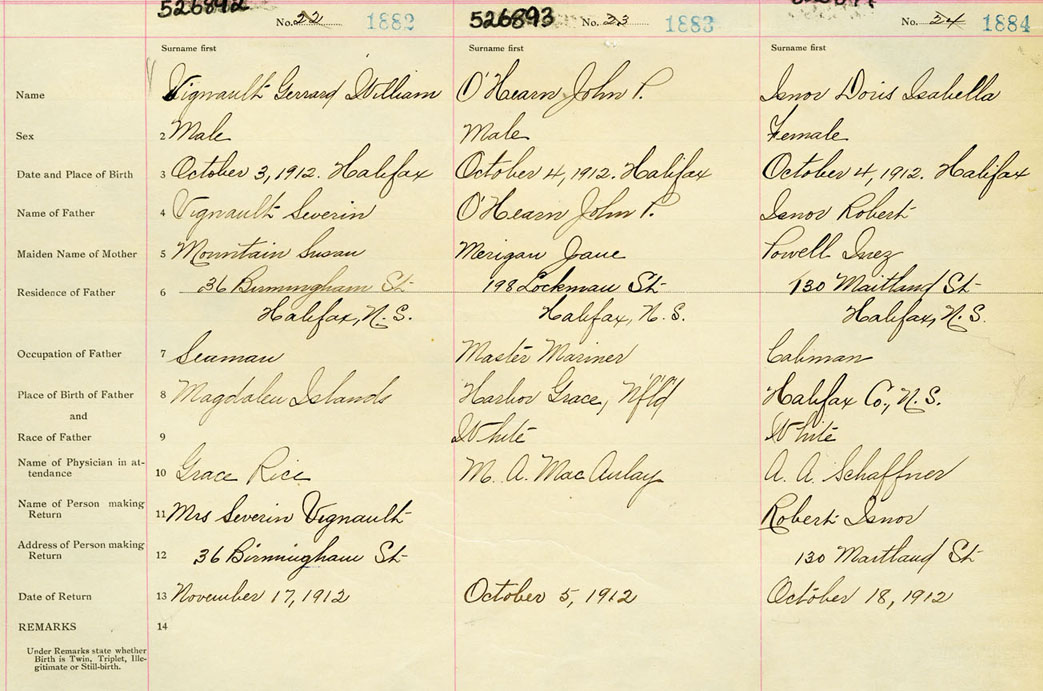 526892 No. 22 1882 526893 No. 23 1883 No. 24 1884
Surname first Surname first Surname first
Name Vignault Gerrard William O'Hearn John P. Isnor Doris Isabella
Sex 2 Male Male Female
Date and Place of Birth 3 October 3, 1912. Halifax October 4, 1912. Halifax October 4, 1912. Halifax
Name of Father 4 Vignault Severin O'Hearn John P. Isnor Robert
Maiden Name of Mother 5 Mountain Susan Merigan Jane Powell Inez
Residence of Father 6 36 Birmingham St 198 Lockman St 130 Maitland St
Halifax, N.S. Halifax, N.S. Halifax, N.S.
Occupation of Father 7 Seaman Master Mariner Cabman
Place of Birth of Father 8 Magdalen Islands Harbor Grace, Nf'l'd Halifax Co., N.S.
and
Race of Father 9 White White
Name of Physician in at-
tendance 10 Grace Rice M. A. MacAulay A. A. Schaffner
Name of Person making
Return 11 Mrs Severin Vignault Robert Isnor
Address of Person making
Return 12 36 Birmingham St 130 Maitland St
Date of Return 13 November 17, 1912 October 5, 1912 October 18, 1912
REMARKS 14
Under Remarks state whether
Birth is Twin, Triplet, Ille-
gitimate or Still-birth.